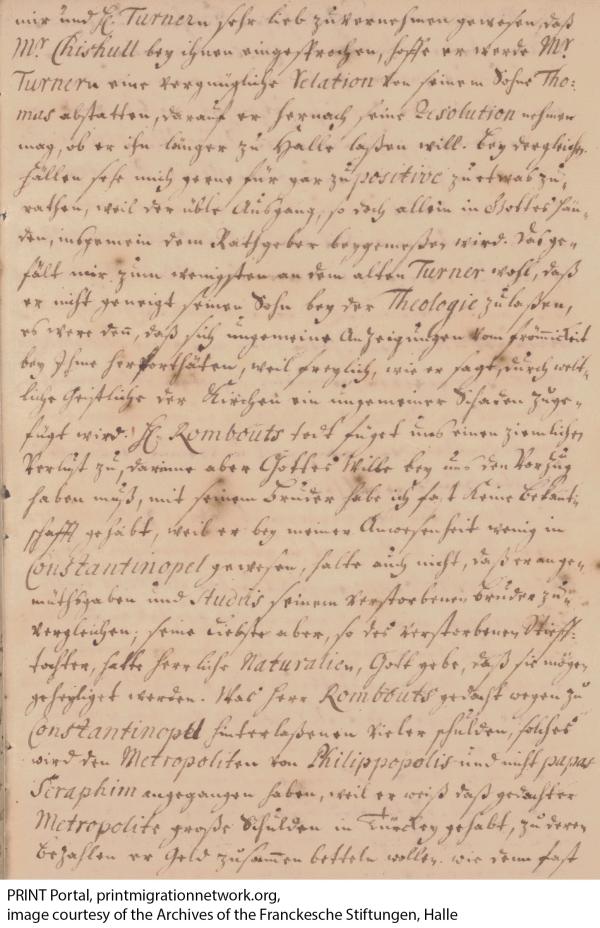 mir und H. Turnern sehr lieb zuvernehmen gewesen, daß
Mr. Chishull bey ihnen eingesprochen, hoffe er werde Mr.
Turnern eine vergnügliche Relation von seinem Sohne Tho=
mas abstatten, darauf er hernach seine Resolution nehmen
mag, ob er ihn länger zu Halle laßen will. Bey dergleichen
fällen sehe mich gerne für gar zu positive zu etwas zu
rathen, weil der üble Ausgang, so doch allein in Gottes Hän=
den, insgemein dem Rathgeber beygemeßen wird. Das ge=
fält mir zum wenigsten an dem alten Turner wohl, daß
er nicht geneigt seinen Sohn bey der Theologie zulaßen,
es were denn, daß sich ungemeine Anzeigungen vom frömmikeit
bey Ihme herforthäten, weil freylich, wie er sagt, durch welt=
liche Geistliche der Kirchen ein ungemeiner Schaden zuge=
fügt wird. H. Rombouts todt füget uns einen ziemlichen
Verlust zu, darinne aber Gottes Wille bey uns den Vorzug
haben muß, mit seinem Bruder habe ich fast keine Bekant=
schafft gehabt, weil er bey meiner Anwesenheit wenig in
Constantinopel gewesen, halte auch nicht, daß er an ge=
müthsgaben und Studiis seinem verstorbenen Bruder zu
vergleichen; seine Liebste aber, so des verstorbenen Stieff=
tochter, hatte herrliche Naturalien, Gott gebe, daß sie mögen
geheyliget werden. Was Herr Rombouts gedacht wegen zu
Constantinopel hinterlaßenen vieler schulden, solches
wird den Metropoliten von Philippopolis und nicht papas
Seraphim angegangen haben, weil er weiß daß gedachter
Metropolite große Schulden in Türckey gehabt, zu deren
Bezahlen er Geld zusammen betteln wollen. wie denn fast
PRINT Portal, printmigrationnetwork.org,
image courtesy of the Archives of the Franckesche Stiftungen, Halle